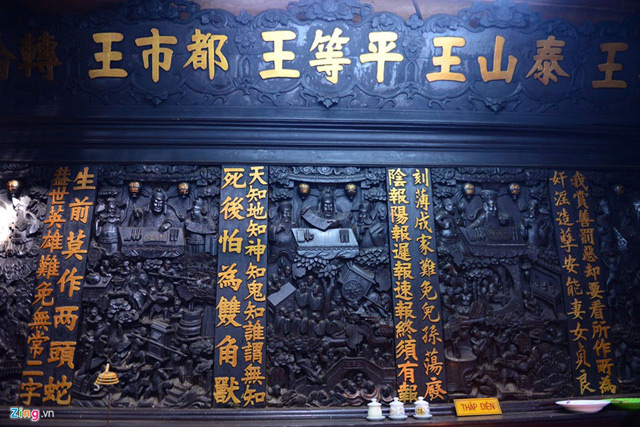 王
泰山王
平等王
都市王
轉
我賞善罰惡却要看所作所為
奸淫造孽安能妻女貞良
刻薄成家難免兒孫蕩廢
陰報陽報遲報速報終須有報
天知地知神知鬼知誰謂無知
死後怕為雙角獸
生前莫作两頭蛇
葢世英雄難免無常二字
THẬP ĐIỆN
Zing.vn